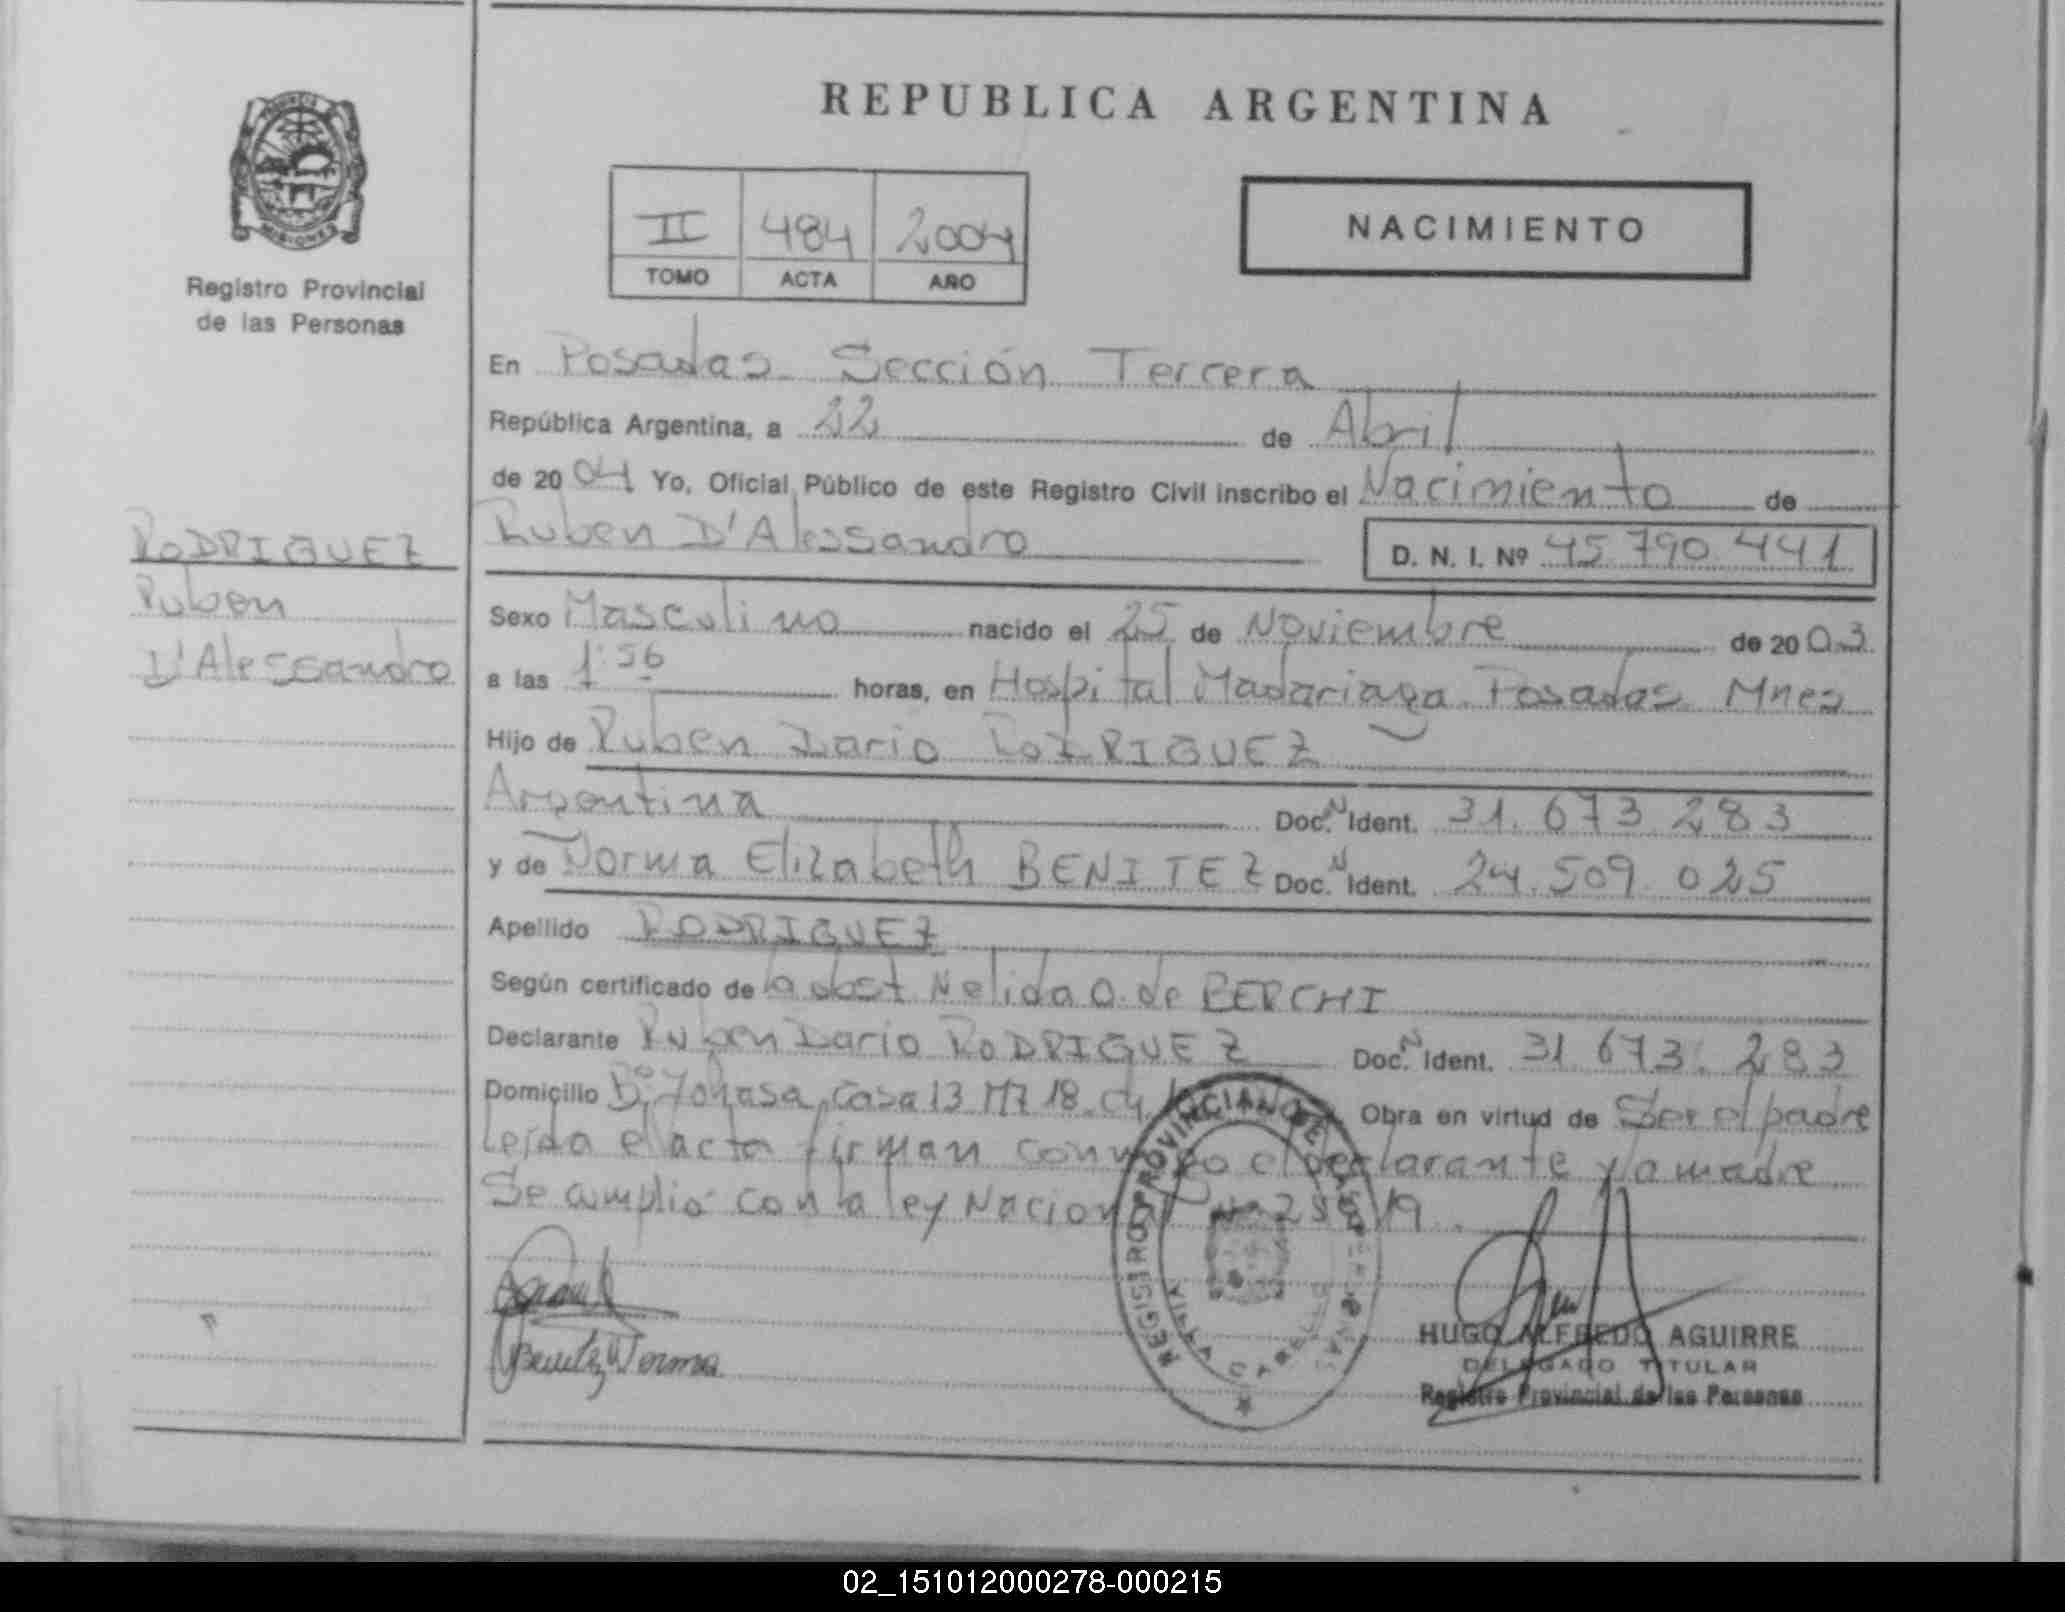 REPUBLICA ARGENTINA
PROVINCIA
MISIONES
Registro Provincial
de las Personas
II 484 2004
TOMO ACTA AÑO
NACIMIENTO
En Posadas Sección Tercera
República Argentina, a 22 de Abril
de 2004 Yo, Oficial Público de este Registro Civil inscribo el Nacimiento de
Ruben D'Alessandro D. N. I. Nº 45.790.441
RODRIGUEZ
Ruben
D'Alessandro
Sexo Masculino nacido el 25 de Noviembre de 2003
a las 1:56 horas, en Hospital Madariaga Posadas Mnes
Hijo de Ruben Dario RODRIGUEZ
Argentina Doc. N Ident. 31.673.283
y de Norma Elizabeth BENITEZ Doc. N Ident. 24.509.025
Apellido RODRIGUEZ
Según certificado de la obst Nelida O. de BERCHI
Declarante Ruben Dario RODRIGUEZ Doc. N Ident. 31.673.283
Domicilio Bº Casa 13 Mz 18 Obra en virtud de Ser el padre
Leida el acta firman conmigo el declarante y la madre
Se cumplió con la ley Nacional Nº
REGISTRO PROVINCIAL DE LAS PERSONAS
VILLA CABELLO
Benitez Norma
HUGO ALFREDO AGUIRRE
DELEGADO TITULAR
Registro Provincial de las Personas
02_151012000278-000215